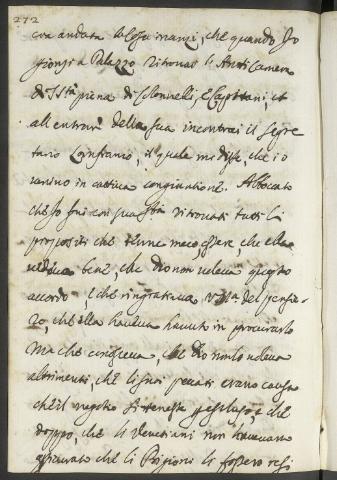 272
era andata la cosa inanzi, che quando Io
gionsi a Palazzo ritrovai l'Anticamera
di S. Stà piena di Colonnelli, e Capitani, et
all'entrar della sua incontrai il Segre
tario, il quale mi disse, che io
venivo in cattiva congiuntione. Abboccato
ch'Io fui con sua Stà ritrovai tutti li
propositi che tenne meco, essere, che ella
vedeva bene, che Dio non voleva questo
accordo e che ringratiava V. S. del pensie
ro, che ella haveva havuto in procurarlo
Ma che, che Dio non lo voleva
altrimenti, che li suoi peccati erano causa
che il negotio si tenesse, e che
doppo, che li Venetiani non havevano
che li Prigioni li fossero resi